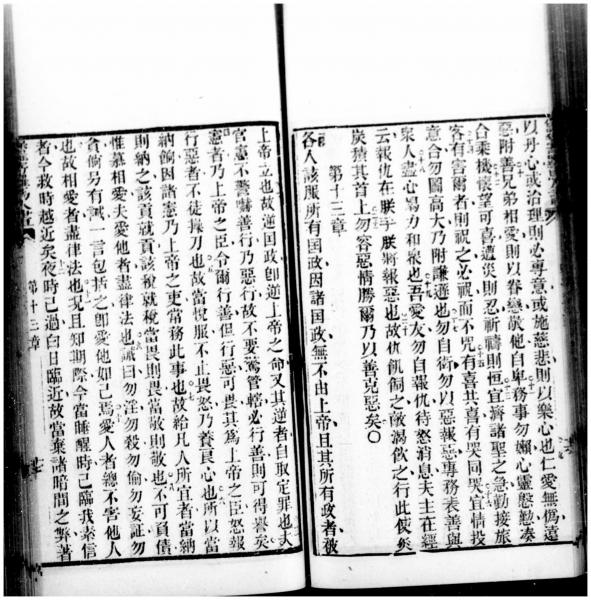 以丹心或治理則必專意或施慈悲則以樂心也仁愛無僞遠
惡附善兄弟相愛則以眷戀敬他自卑務事勿懶心靈慇懃凑
合乘機懷望可喜遭災則忍祈禱則恒宜濟諸聖之急勤接旅
客有害爾者則祝之必祝而不咒有喜共喜有哭同哭宜情投
意合勿圖高大乃附謙遜也勿自衒勿以惡報惡專務表善與
衆人盡心曷力和衆也吾愛友勿自報仇待怒消息夫主在經
云報仇在朕手朕將報惡也故仇飢飼之敵渴飲之行此使矣
炭攢其首上勿容惡情勝爾乃以善克惡矣〇
第十三章
各人該服所有国政因諸国政無不由上帝且其所有政者被
上帝立也故逆国政卽逆上帝之命又其逆者自取定罪也夫
官憲不警嚇善行乃惡行故不要驚管轄必行善則可得譽矣
憲者乃上帝之臣令爾行善但行惡可畏其爲上帝之臣怒報
行惡者不徒操刀也故當悅服不止畏怒乃養良心也所以當
納餉因諸憲乃上帝之吏當務此事也故給凡人所宜者當納
則納之該貢就貢該稅就稅當畏則畏當敬則敬也不可負債
惟慕相愛夫愛他者盡律法也誡曰勿淫勿殺勿偷勿妄証勿
貪倘另有誡一言包括之卽愛他如己焉愛人者總不害他人
也故相愛者盡律法也況且知期際今當睡醒時已臨我素信
者今救時越近矣夜時已過白日臨近故當棄諸暗間之弊著
第十三章